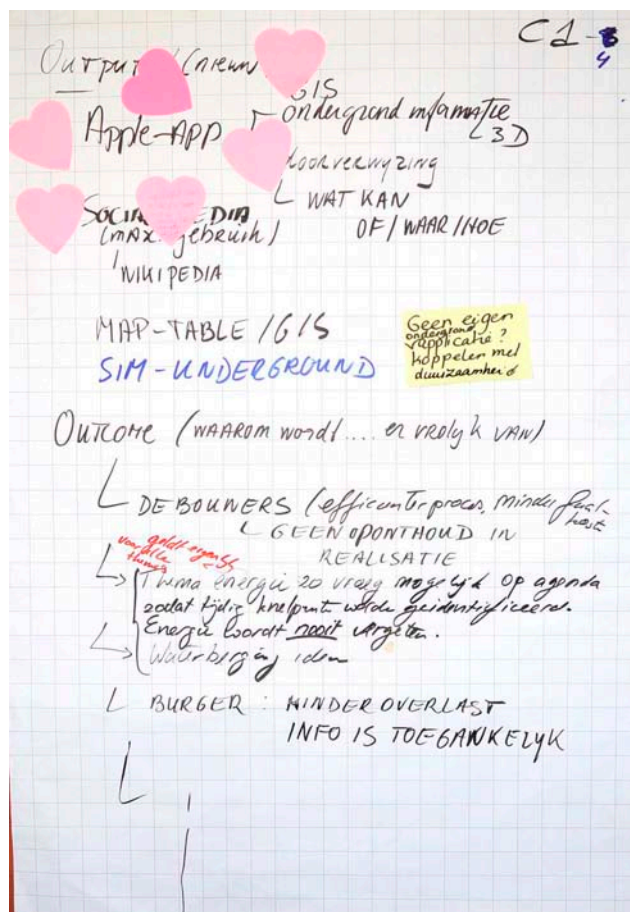 C1-
4
Output / (nieuw
GIS
Apple-App
ondergrond informatie
3D
doorverwyzing
WAT KAN
OF/WAAR/HOE
SOCIAL MEDIA
(max. gebruik)
WIKIPEDIA
MAP-TABLE/GIS
SIM-UNDERGROUND
Geen eigen
ondergrond
applicatie?
koppelen met
duurzaamheid
OUTCOME (WAAROM wordt.... er vrolyk VAN)
DE BOUWERS (efficienter proces, minder faal-
kost
GEEN OPONTHOUD IN
REALISATIE
geldt eigenlijk
voor alle
thema's
Thema energie zo vroeg mogelijk op agenda
zodat tijdig knelpunten worden geïdentificeerd.
Energie wordt nooit vergeten.
Waterberging idem
BURGER: MINDER OVERLAST
INFO IS TOEGANKELYK